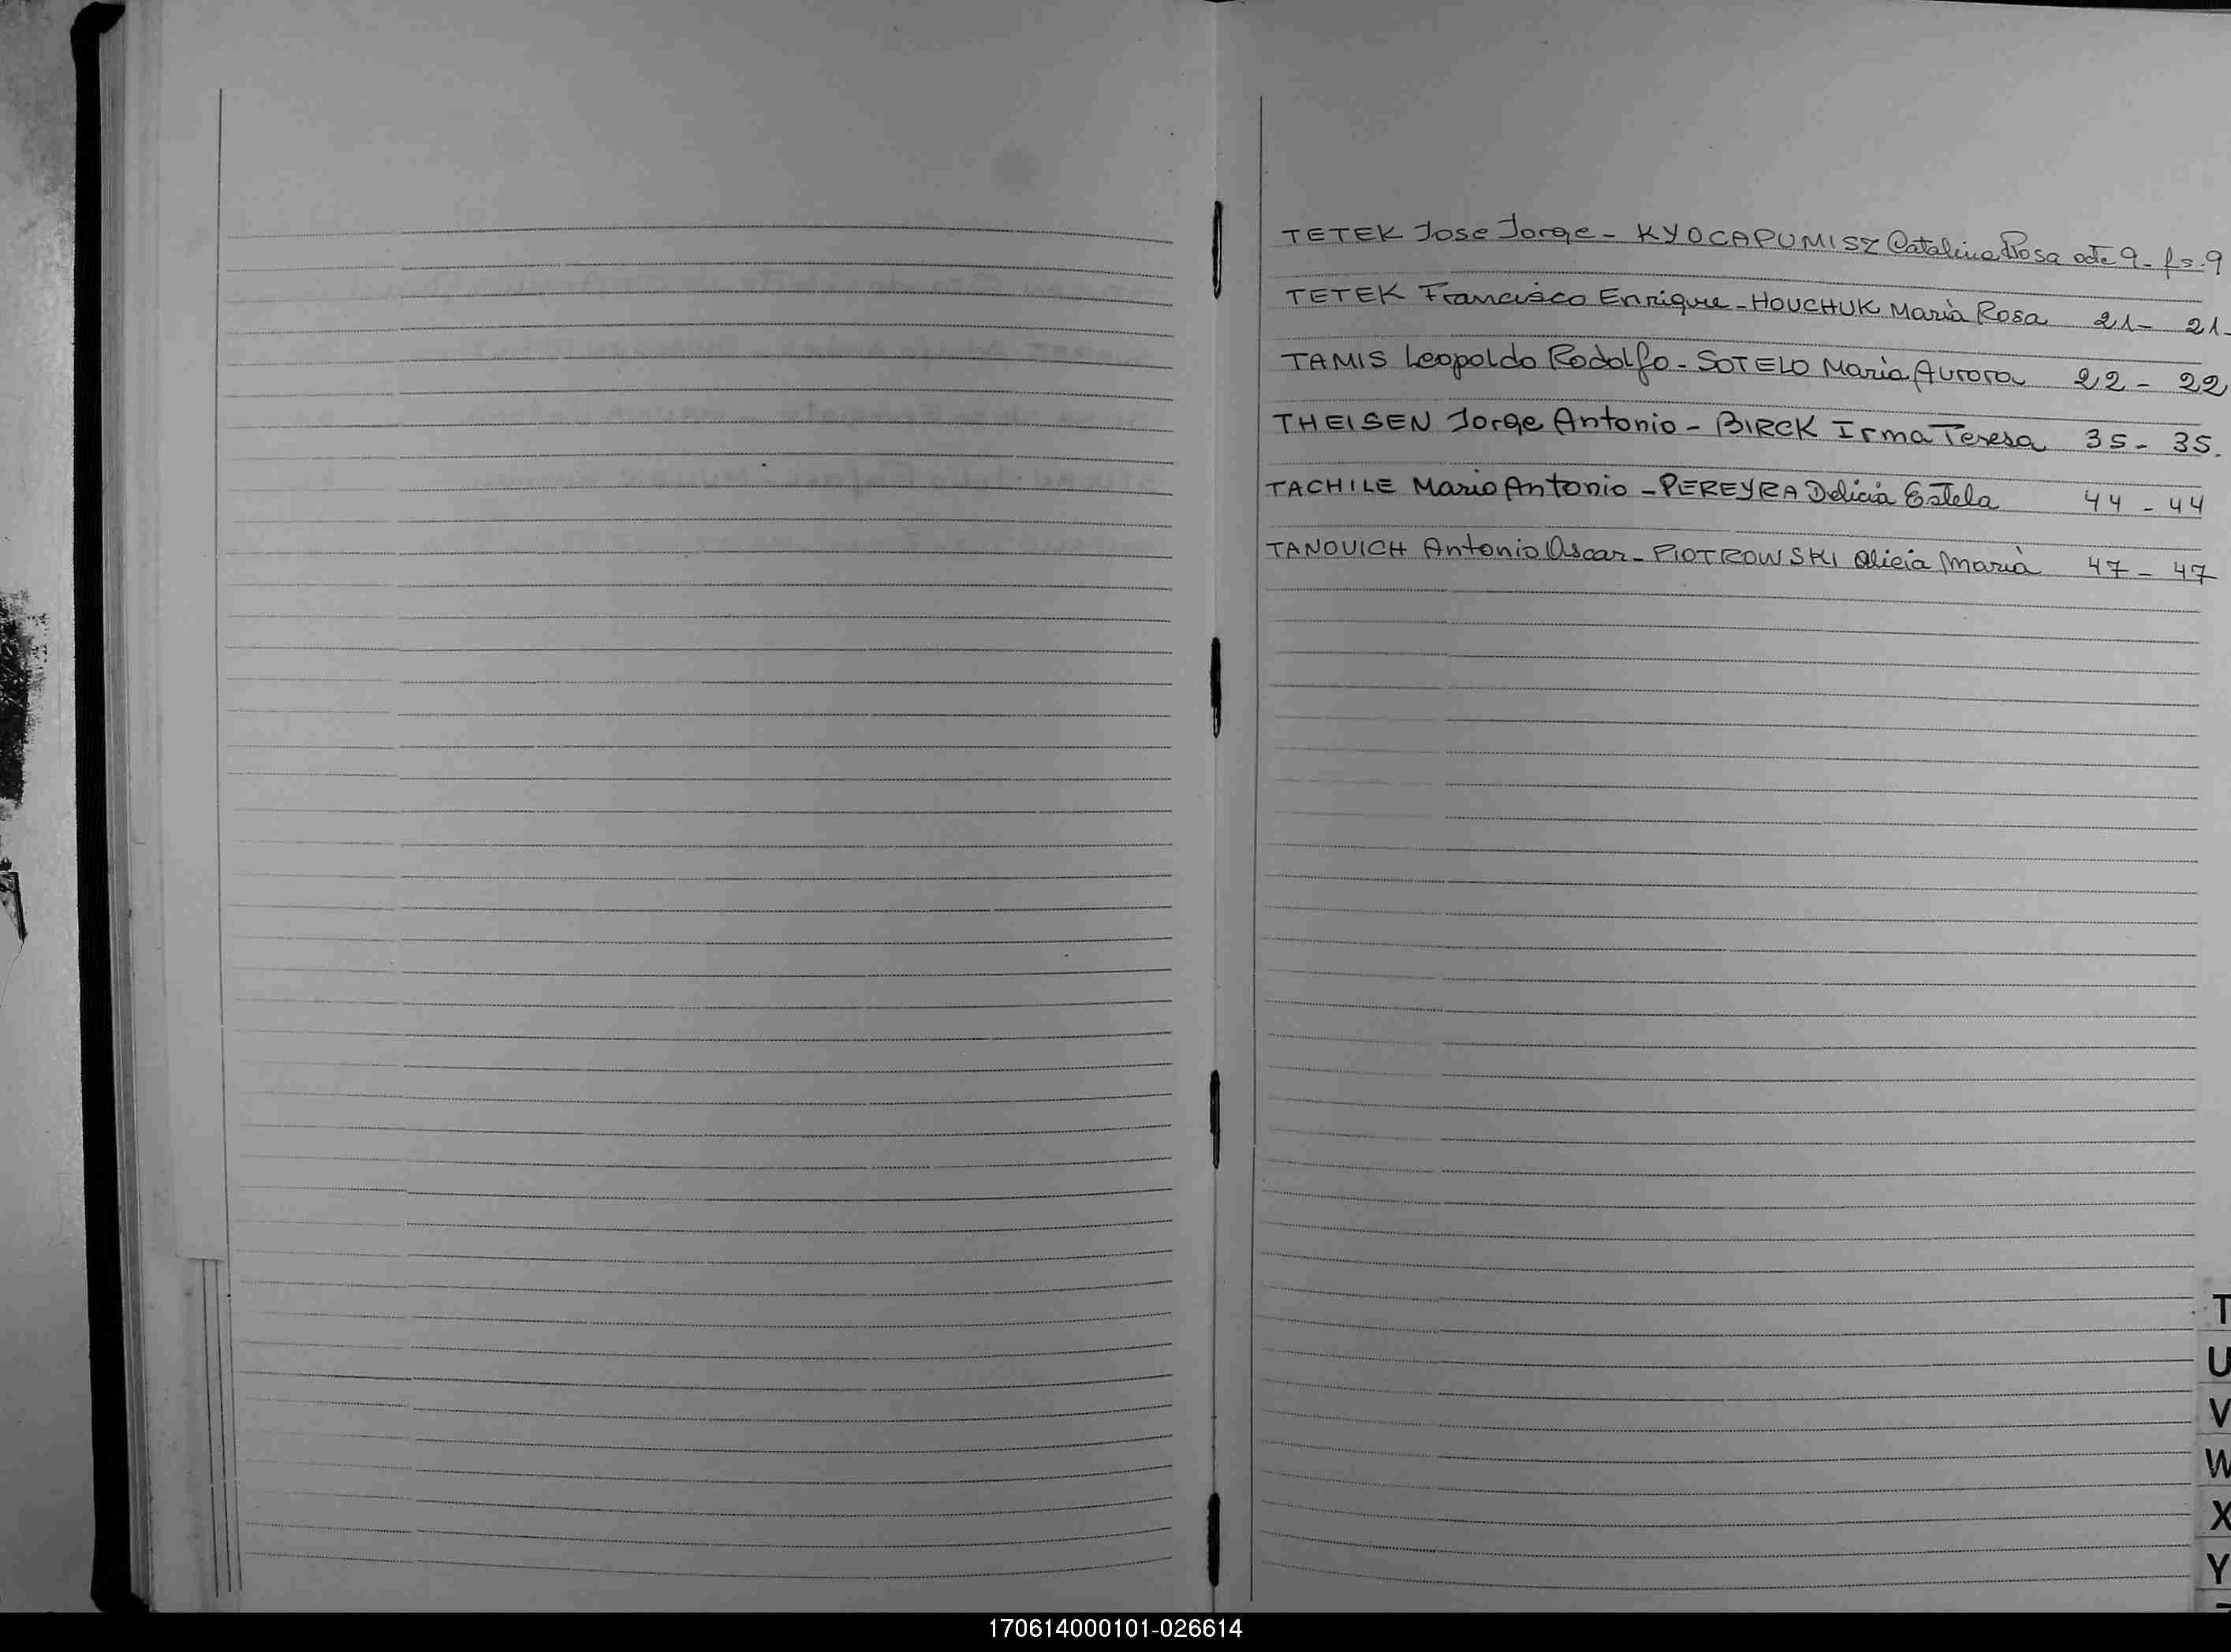 TETEK Jose Jorge - KYOCAPUMISZ Catalina Rosa acta 9 - fs. 9
TETEK Francisco Enrique - HOUCHUK Maria Rosa 21 - 21 -
TAMIS Leopoldo Rodolfo - SOTELO Maria Aurora 22 - 22
THEISEN Jorge Antonio - BIRCK Irma Teresa 35 - 35.
TACHILE Mario Antonio - PEREYRA Delicia Estela 44 - 44
TANOVICH Antonio Oscar - PIOTROWSKI Alicia Maria 47 - 47
T
U
V
W
X
Y
170614000101-026614